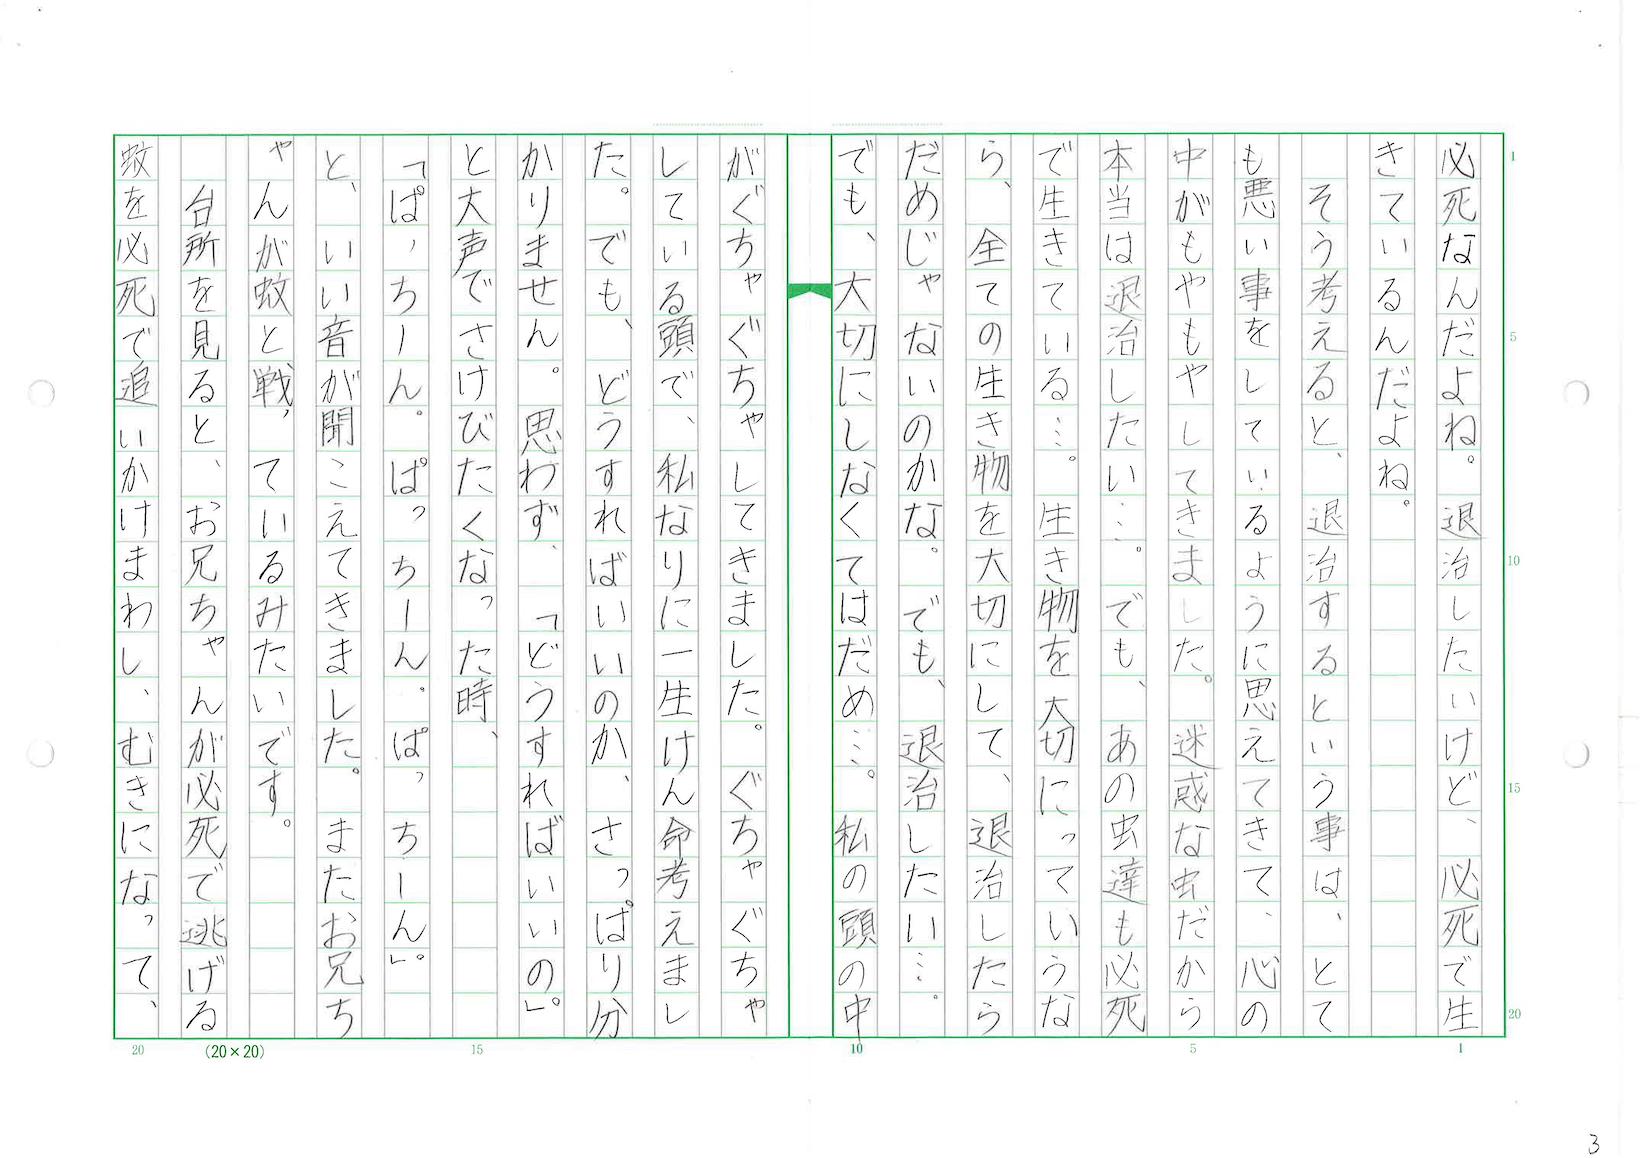 必死なんだよね。退治したいけど、必死で生
きているんだよね。
そう考えると、退治するという事は、とて
も悪い事をしているように思えてきて、心の
中がもやもやしてきました。迷惑な虫だから
本当は退治したい…。でも、あの虫達も必死
で生きている…。生き物を大切にっていうな
ら、全ての生き物を大切にして、退治したら
だめじゃないのかな。でも、退治したい…。
でも、大切にしなくてはだめ…。私の頭の中
がぐちゃぐちゃしてきました。ぐちゃぐちゃ
している頭で、私なりに一生けん命考えまし
た。でも、どうすればいいのか、さっぱり分
かりません。思わず、「どうすればいいの」。
と大声でさけびたくなった時、
「ぱっちーん。ぱっちーん。ぱっちーん」。
と、いい音が聞こえてきました。またお兄ち
ゃんが蚊と戦っているみたいです。
台所を見ると、お兄ちゃんが必死で逃げる
蚊を必死で追いかけまわし、むきになって、
1
5
10
15
20
1
5
10
15
(20×20)
20
3